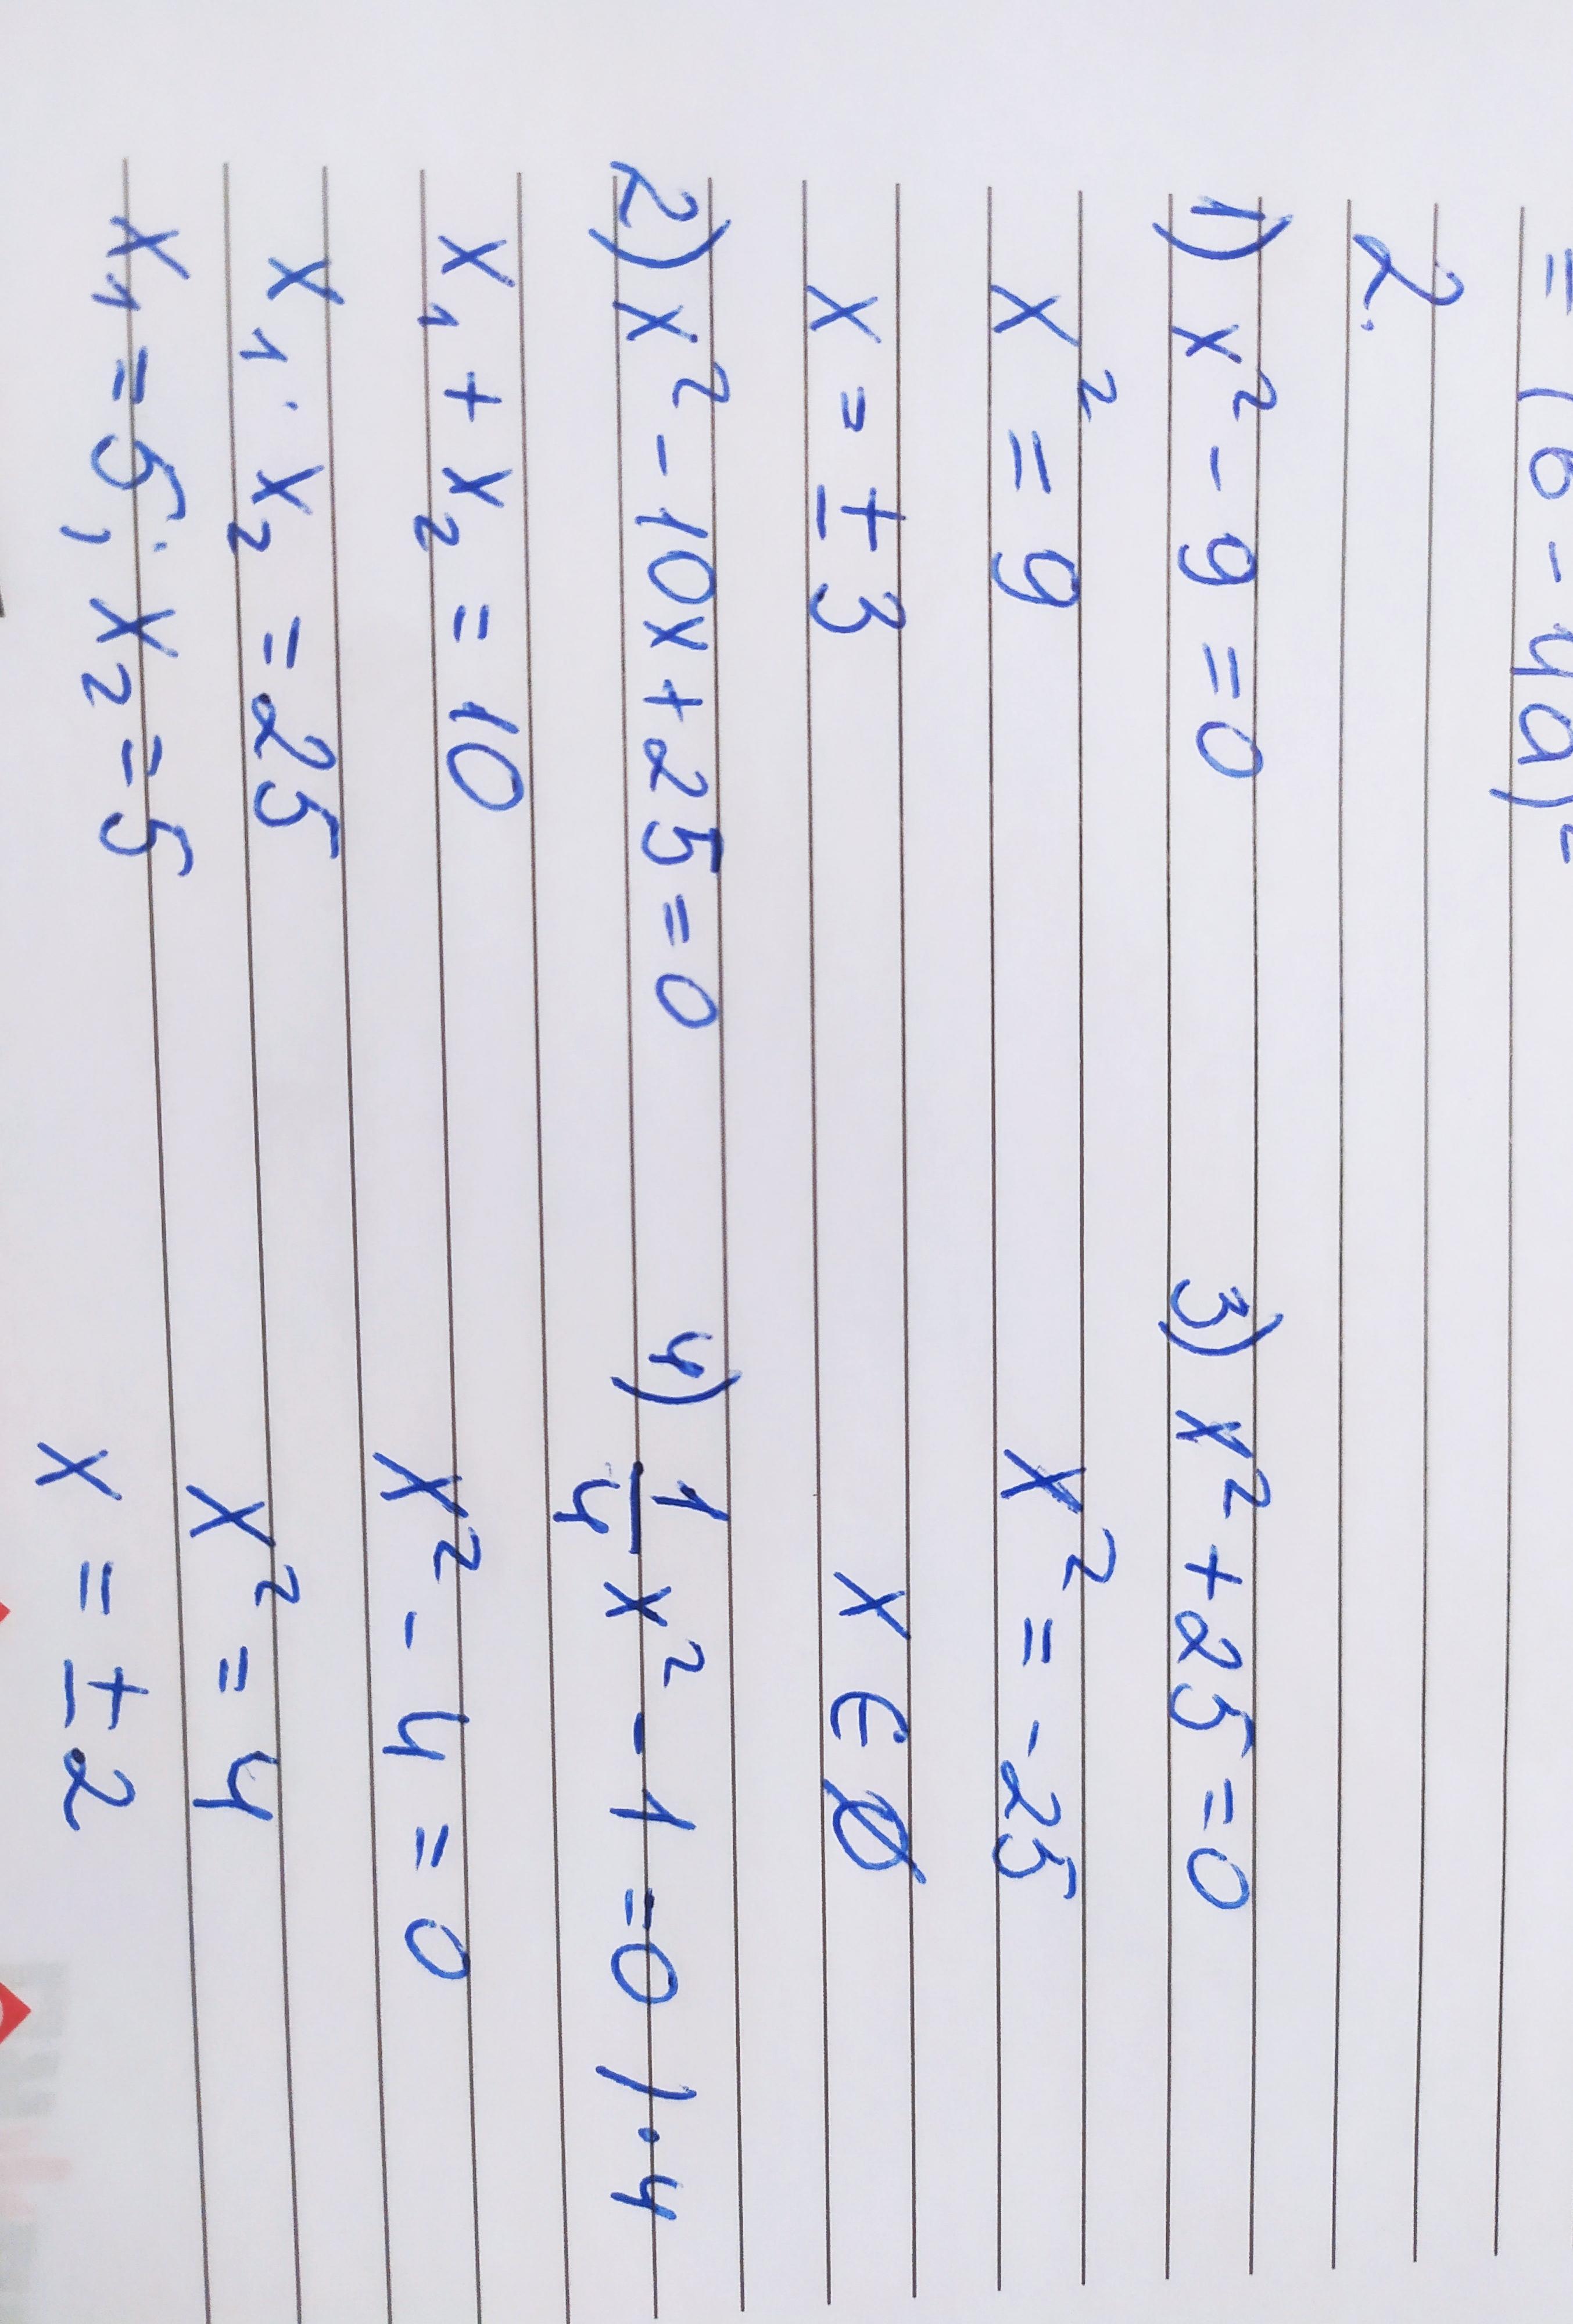 = (6 - 4a)²
2.
1) x² - 9 = 0
x² = 9
x = ± 3
2) x² - 10x + 25 = 0
x₁ + x₂ = 10
x₁ · x₂ = 25
x₁ = 5; x₂ = 5
3) x² + 25 = 0
x² = -25
x ∈ ∅
4) 1/4 x² - 1 = 0 ) · 4
x² - 4 = 0
x² = 4
x = ± 2